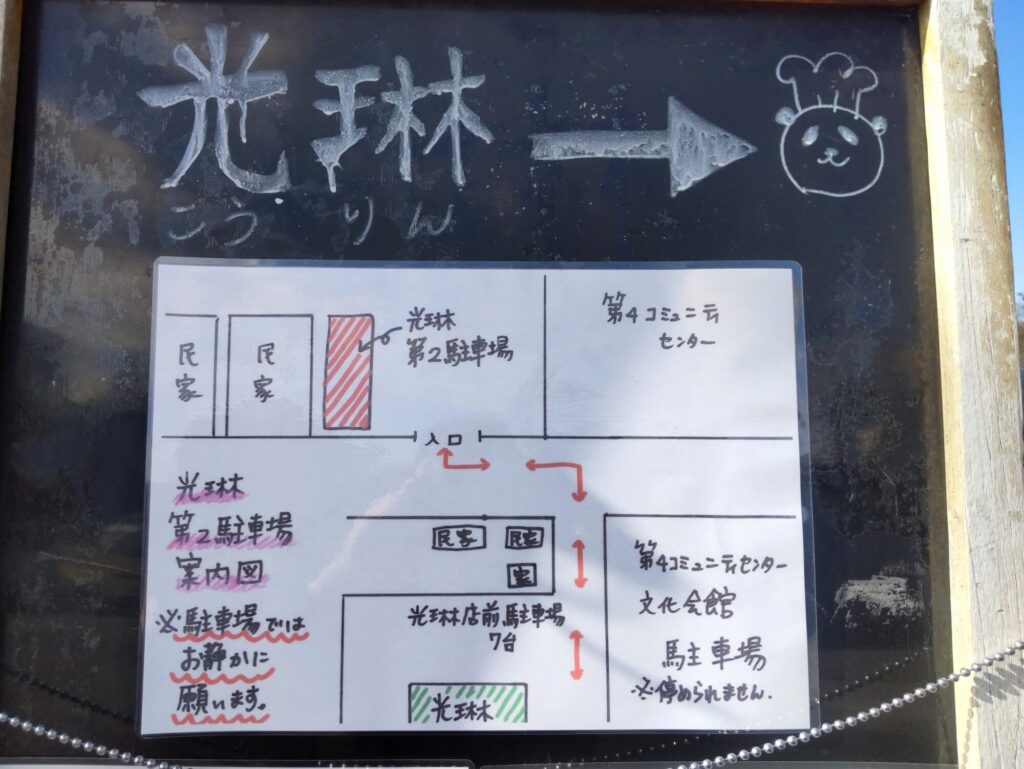 光琳
こうりん
光琳
第2駐車場
第4コミュニティ
センター
民家
民家
入口
光琳
第2駐車場
案内図
※駐車場では
お静かに
願います。
民家
民家
家
光琳店前駐車場
7台
光琳
第4コミュニティセンター
文化会館
駐車場
※停められません.